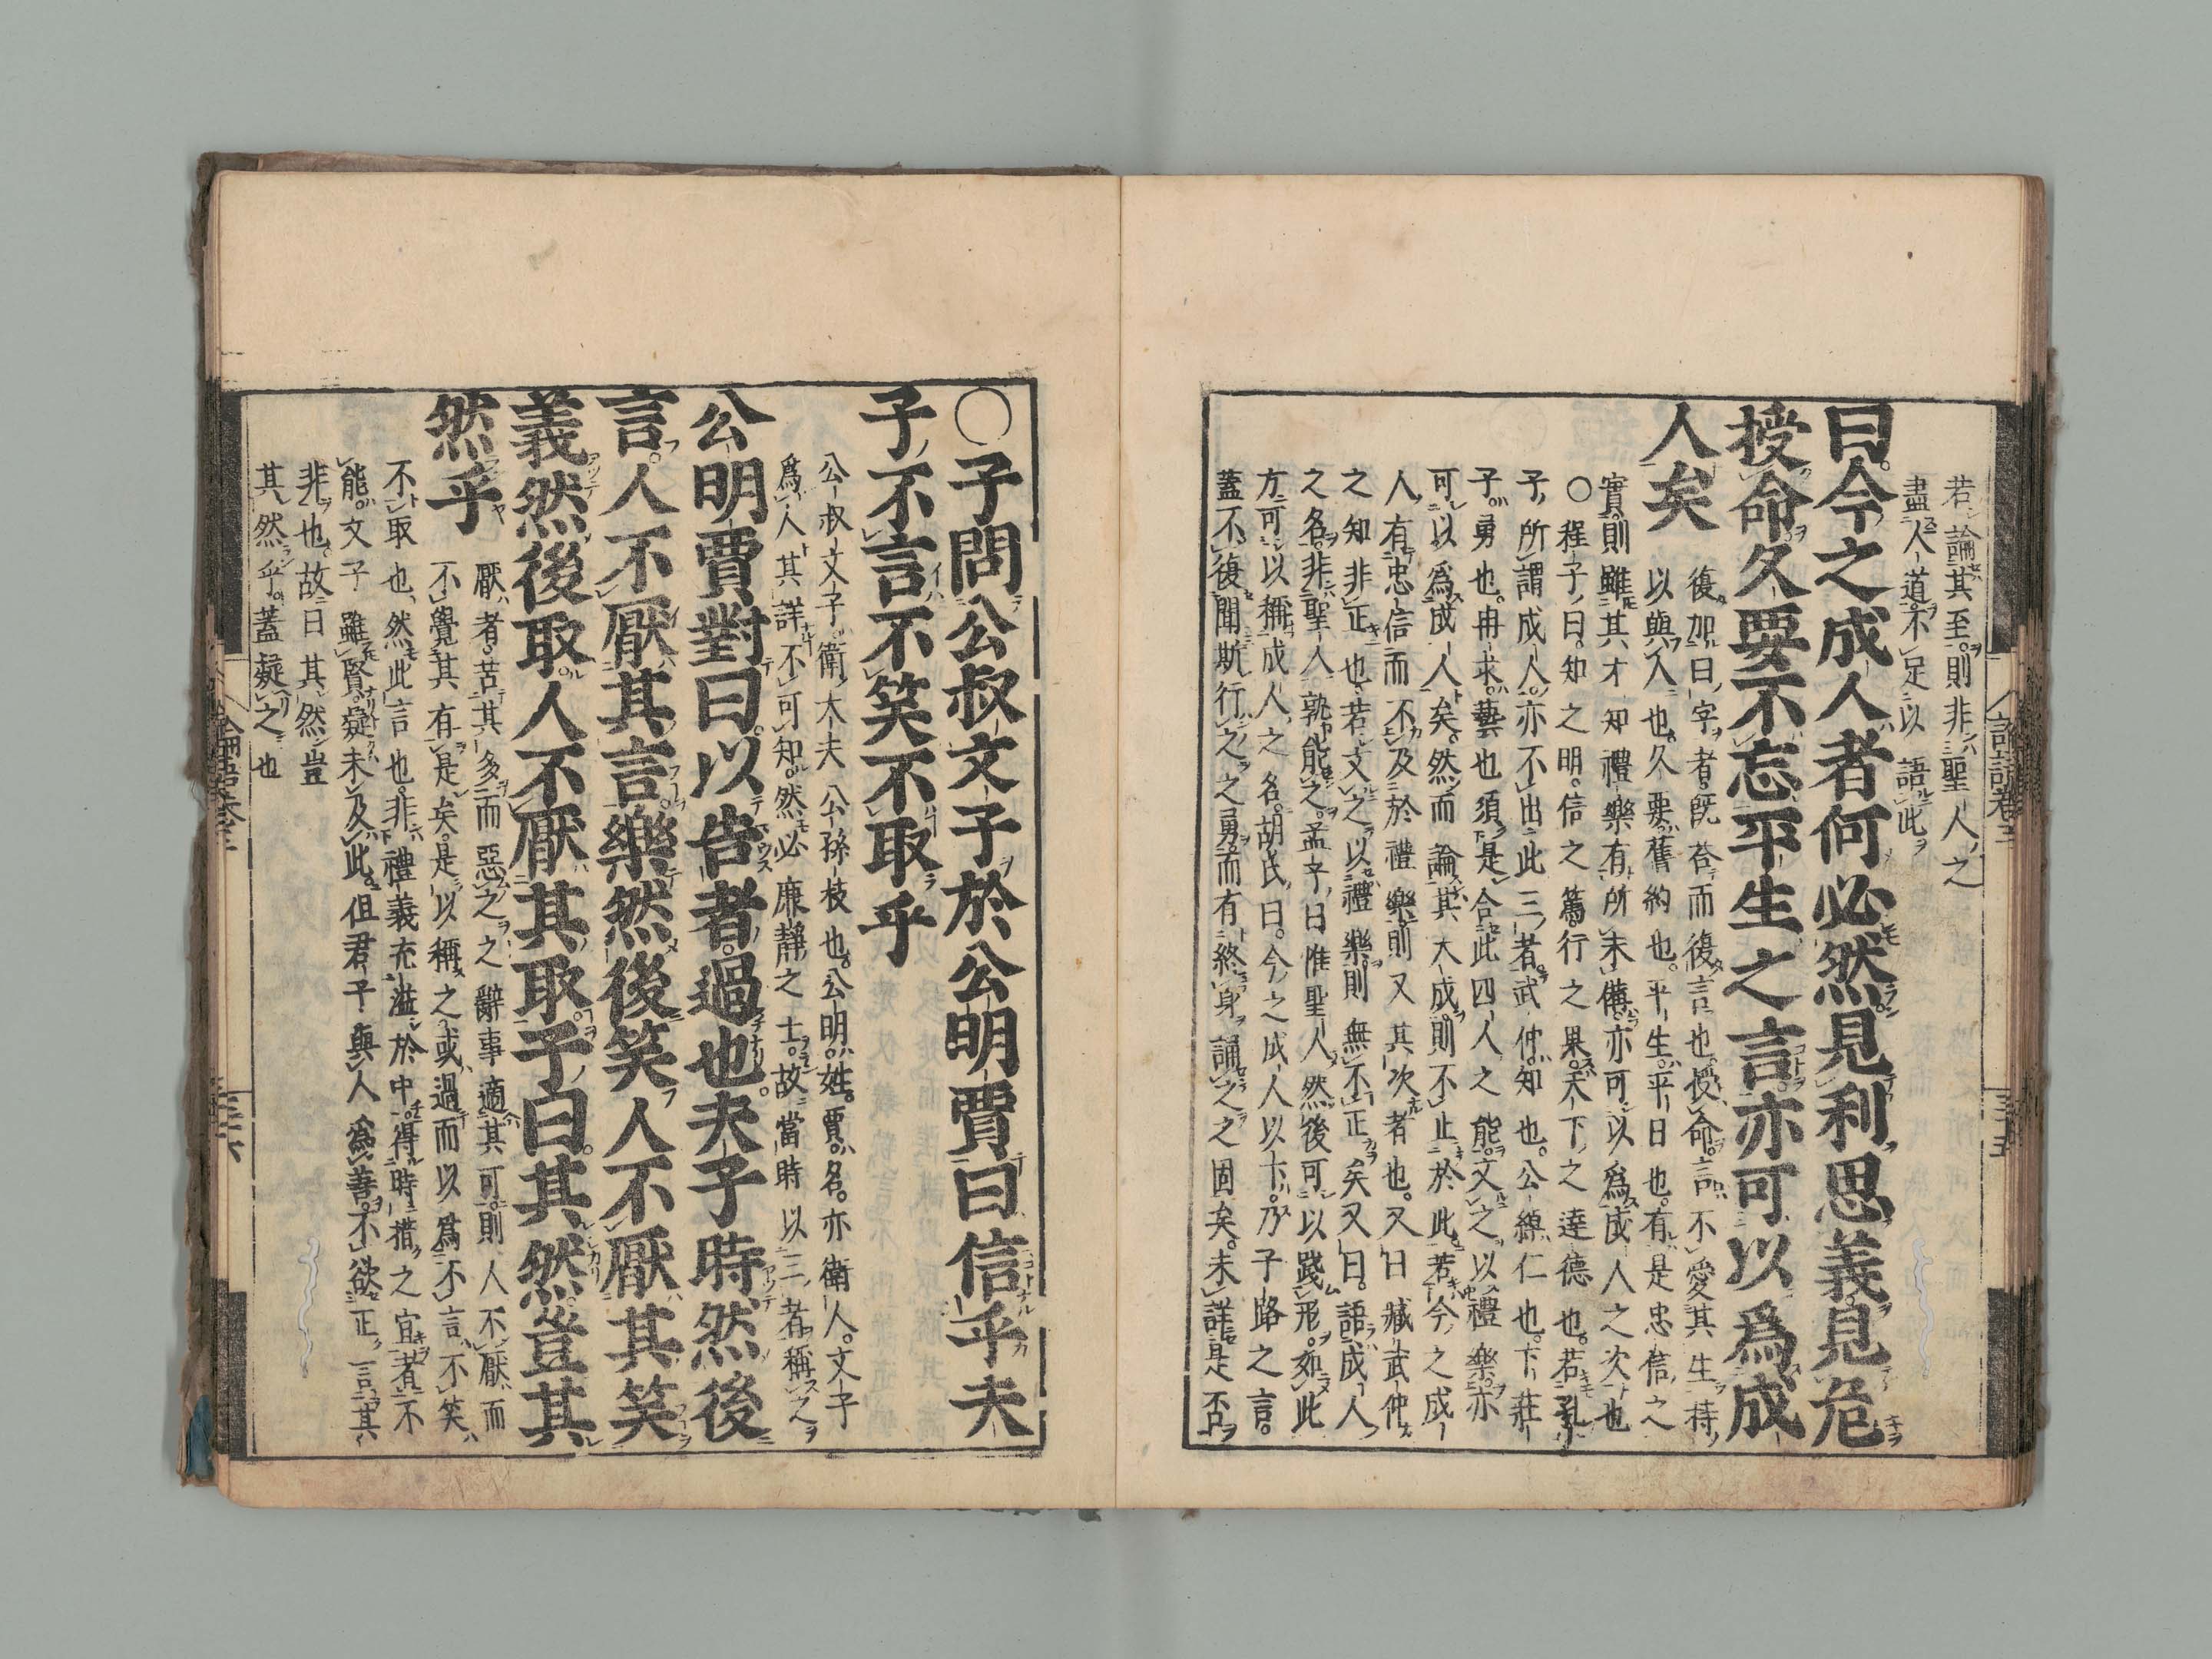 若論其至則非聖人之
盡人道不足以語此
曰今之成人者何必然見利思義見危
授命久要不忘平生之言亦可以爲成
人矣
復加曰字者既荅而復言也授命言不愛其生持
以與人也久要舊約也平生平日也有是忠信之
實則雖其才知禮樂有所未備亦可以爲成人之次也
○程子曰知之明信之篤行之果天下之達德也若孔
子所謂成人亦不出此三者武仲知也公綽仁也卞莊
子勇也冉求藝也須是合此四人之能文之以禮樂亦
可以爲成人矣然而論其大成則不止於此若今之成
人有忠信而不及於禮樂則又其次者也又曰臧武仲
之知非正也若文之以禮樂則無不正矣又曰語成人
之名非聖人孰能之孟子曰惟聖人然後可以踐形如此
方可以稱成人之名胡氏曰今之成人以下乃子路之言
蓋不復聞斯行之之勇而有終身誦之之固矣未詳是否
○子問公叔文子於公明賈曰信乎夫
子不言不笑不取乎
公叔文子衛大夫公孫枝也公明姓賈名亦衛人文子
爲人其詳不可知然必廉靜之士故當時以三者稱之
公明賈對曰以告者過也夫子時然後
言人不厭其言樂然後笑人不厭其笑
義然後取人不厭其取子曰其然豈其
然乎
厭者苦其多而惡之之辭事適其可則人不厭而
不覺其有是矣是以稱之或過而以爲不言不笑
不取也然此言也非禮義充溢於中得時措之宜者不
能文子雖賢疑未及此但君子與人爲善不欲正言其
非也故曰其然豈
其然乎蓋疑之也
論語卷三
三十六